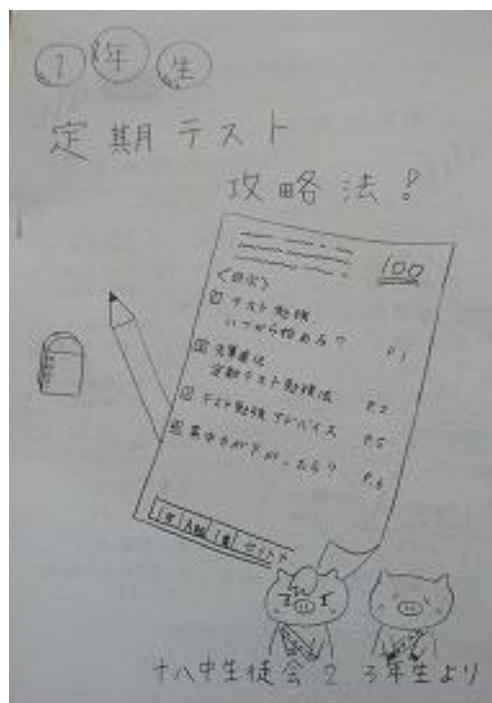 1年生
定期テスト
攻略法!
100
<目次>
テスト勉強、
いつから始める? P.1
定期テスト勉強法 P.2
テスト勉強アドバイス P.5
集中力が下がったら? P.6
十八中生徒会2、3年生より